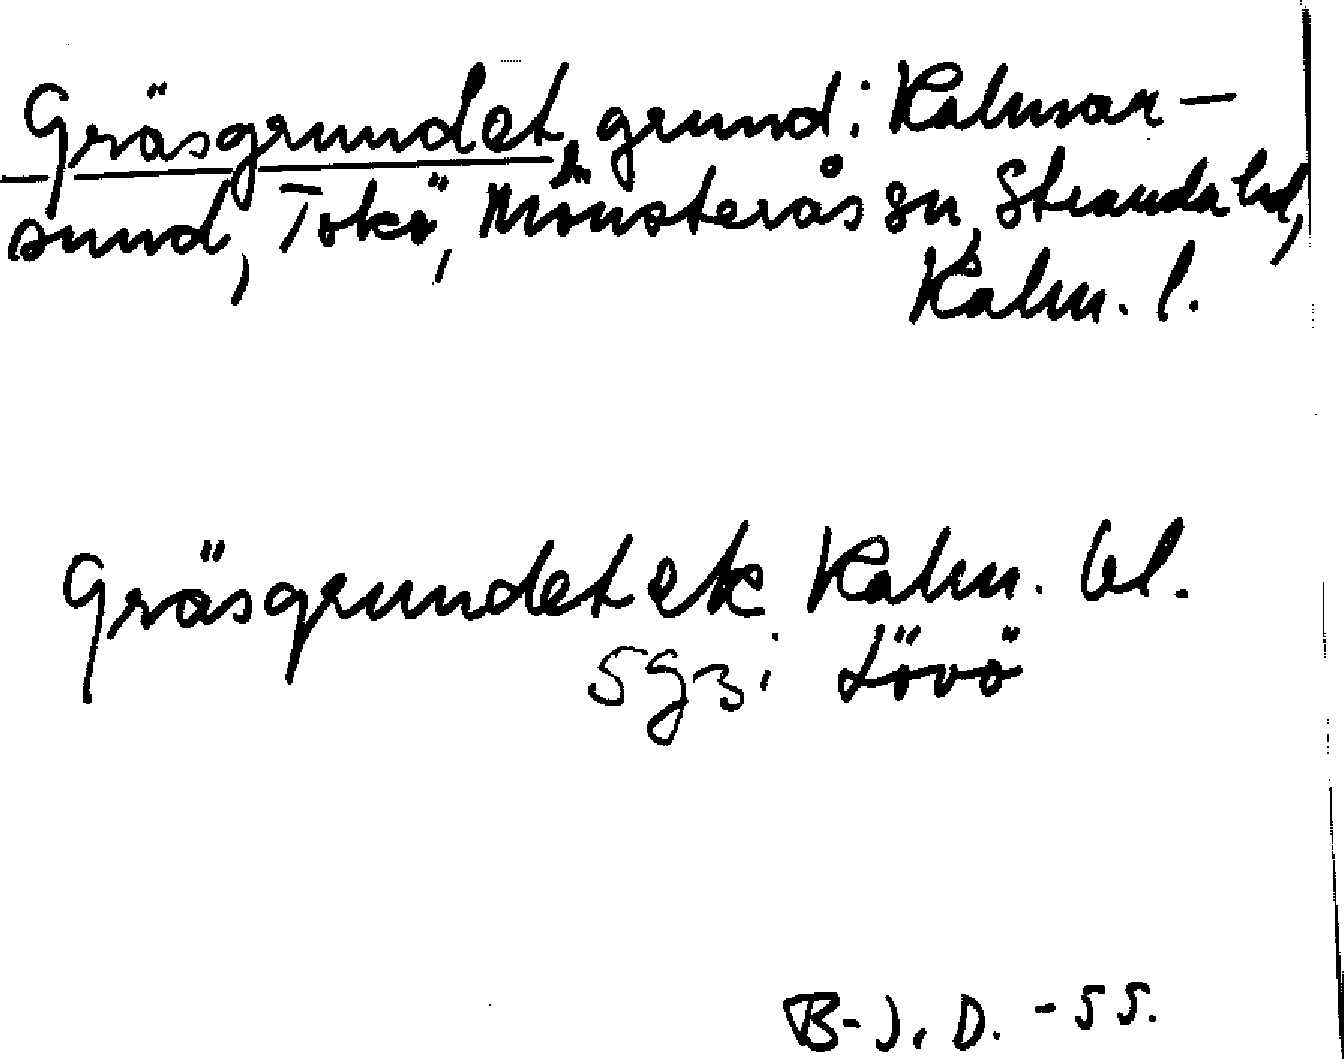 Gräsgrundet, grund i Kalmar-
sund, Tokö, Mönsterås sn, Stranda hd,
Kalm. l.
Gräsgrundet ek Kalm. bl.
5g3i Lövö
B-J. D. -55.